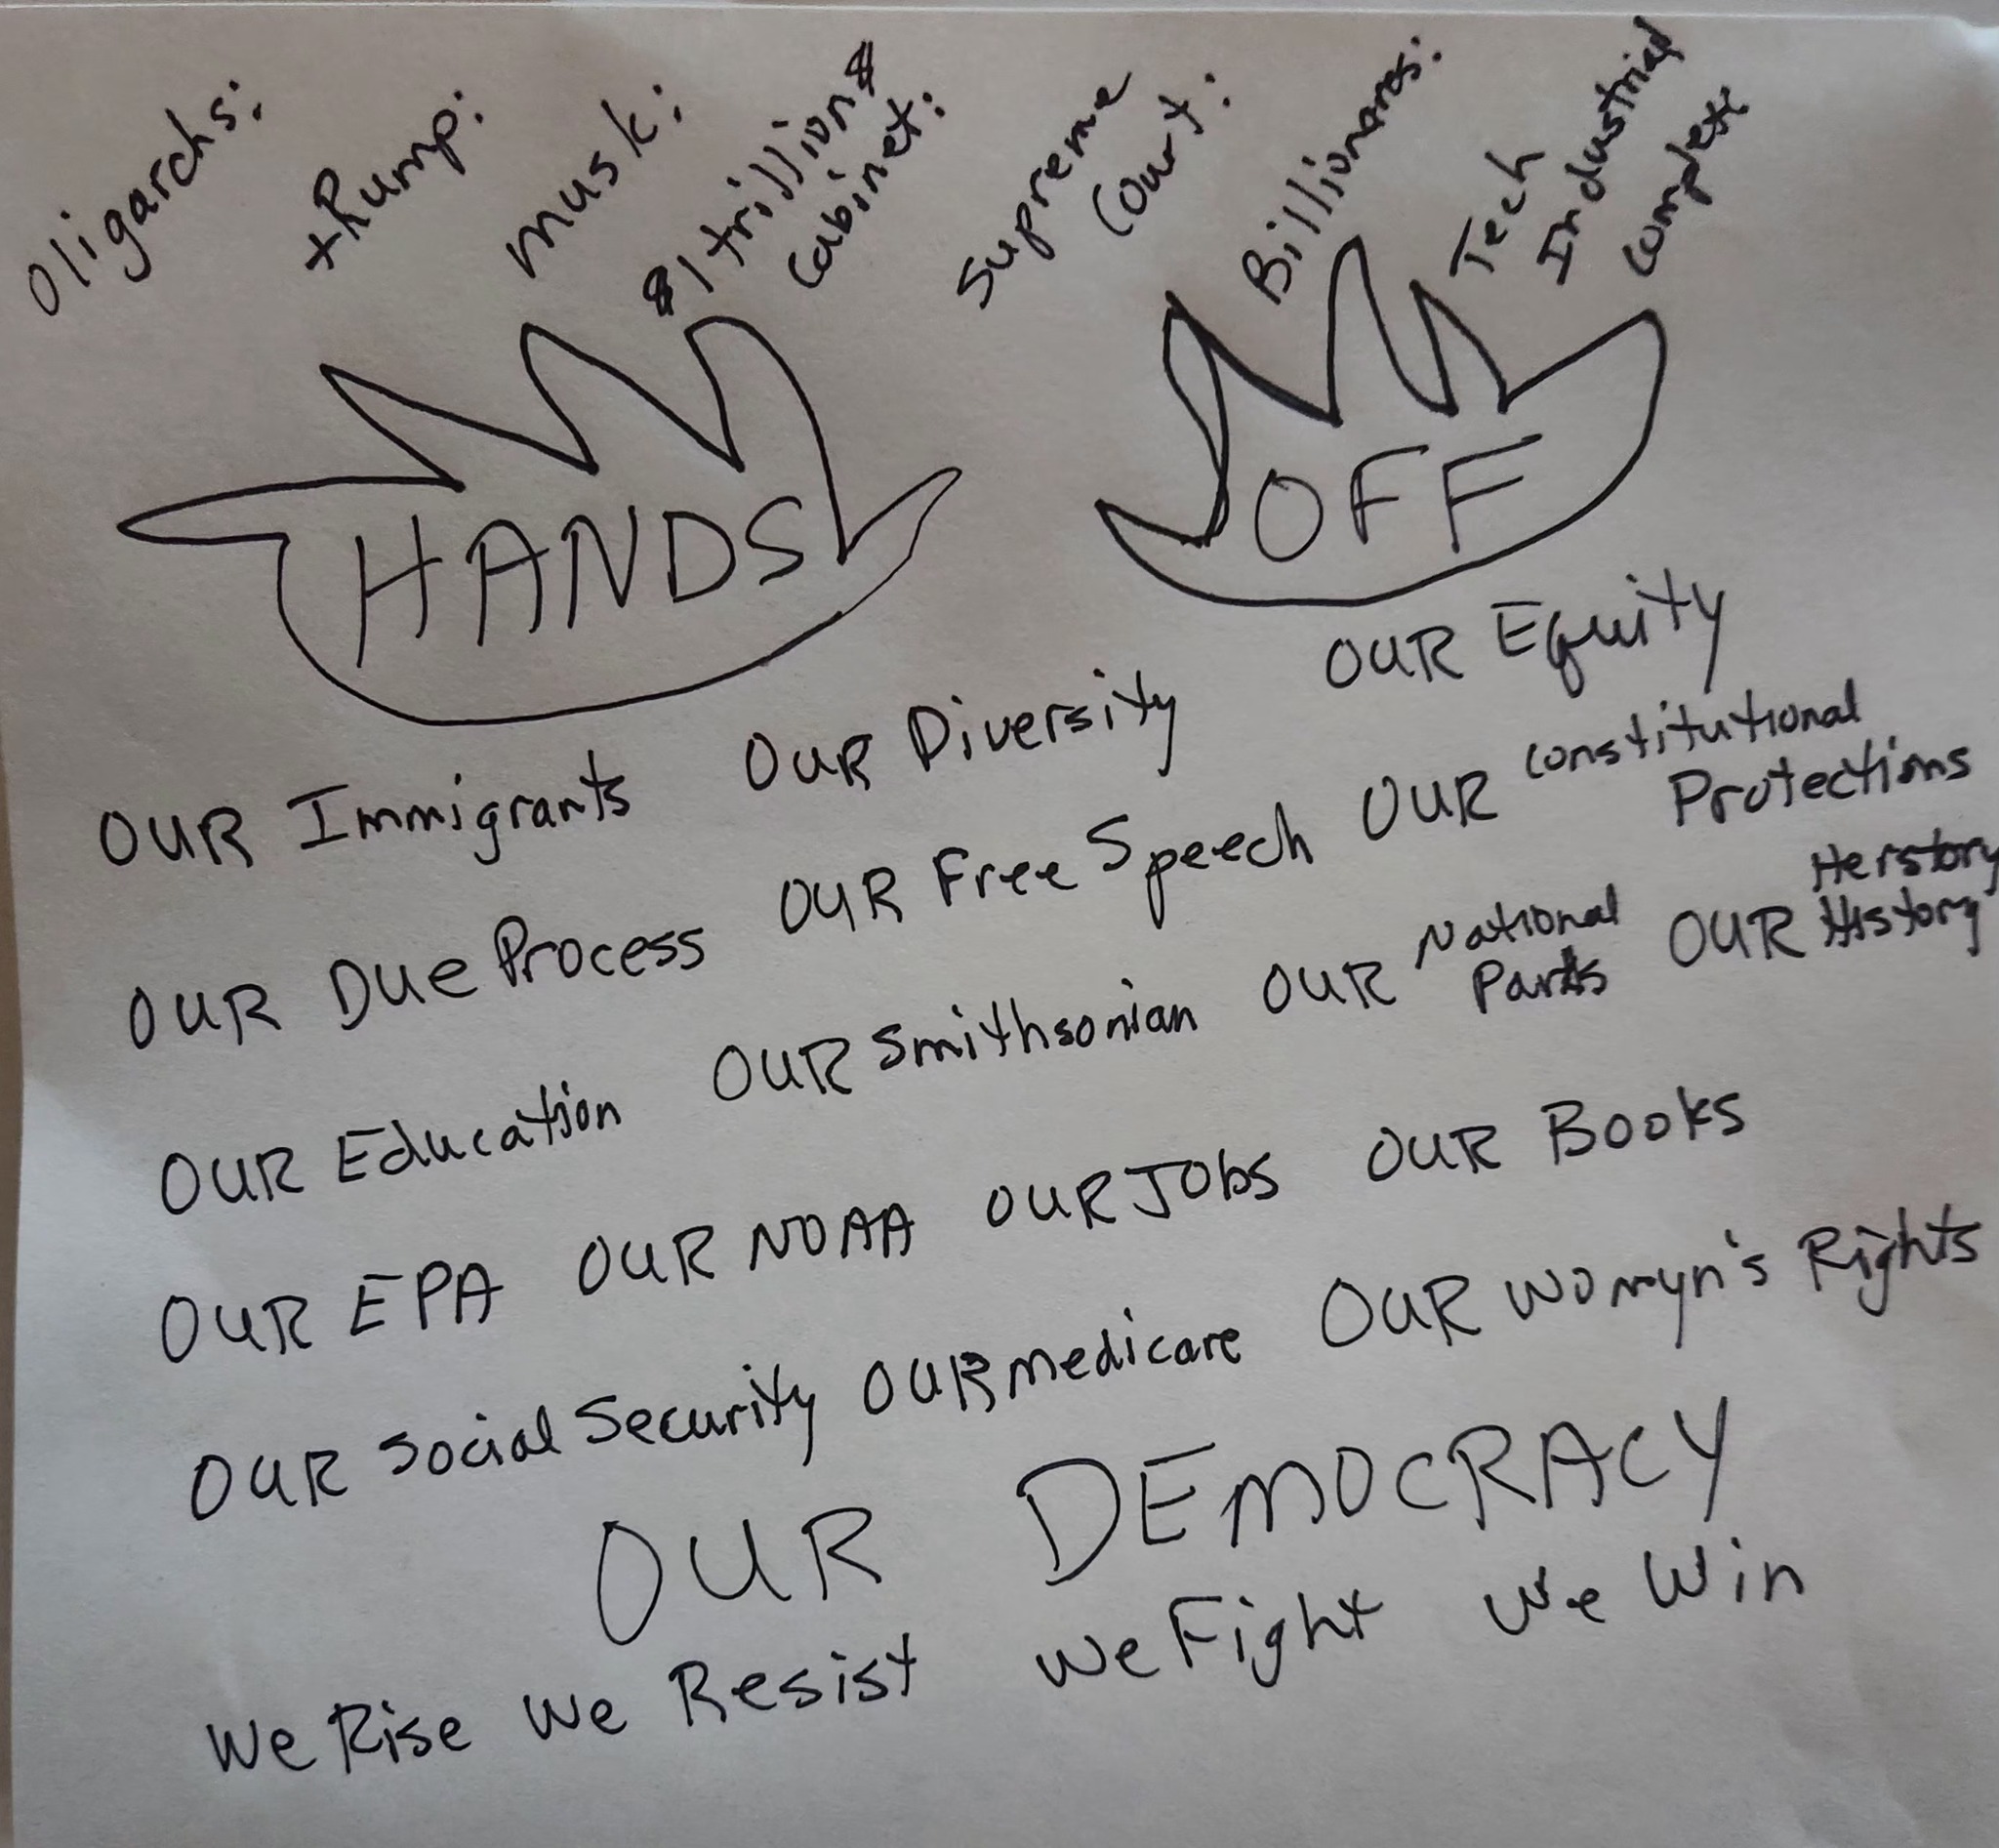 Oligarchs:
tRump:
musk:
$1 trillion$
Cabinet:
Supreme
Court:
Billionares:
Tech
Industrial
Complex
HANDS
OFF
OUR Immigrants OUR Diversity OUR Equity
OUR Due Process OUR Free Speech OUR Constitutional Protections
OUR Education OUR Smithsonian OUR National Parks OUR Herstory History
OUR EPA OUR NOAA OUR JObs OUR BOOks
OUR Social Security OUR medicare OUR womyn's Rights
OUR DEmOcRAcy
We Rise We Resist we Fight We Win